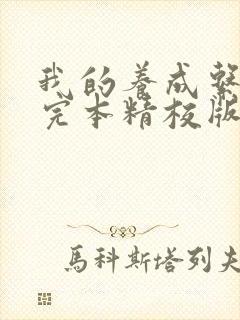 我的养成系
完本精校版
馬科斯塔列夫